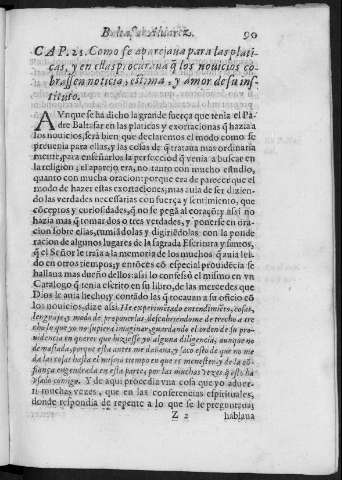 Baltasar Aluarez. 90
CAP. 21. Como se aparejaua para las plati-
cas, y en ellas procuraua q̃ los nouicios co-
brassen noticia, estima, y amor de su ins-
tituto.
AVnque se ha dicho la grande fuerça que tenia el Pa-
dre Baltasar en las platicas y exortaciones q̃ hazia a
los nouicios, será bien que declaremos el modo como se
preuenia para ellas, y las cosas de q̃ trataua mas ordinaria
mente, para enseñarlos la perfecciõ q̃ venia a buscar en
la religion: el aparejo era, no tanto con mucho estudio,
quanto con mucha oracion: porque era de parecer que el
modo de hazer estas exortaciones, mas auia de ser dizien-
do las verdades necessarias con fuerça y sentimiento, que
cõceptos y curiosidades, q̃ no se pegã al coraçõ: y assi no
hazia mas q̃ tomar dos o tres verdades, y ponerse en ora-
cion sobre ellas, rumiãdolas y digiriẽdolas con la ponde
racion de algunos lugares de la sagrada Escritura y santos,
q̃ el Señor le traia a la memoria de los muchos q̃ auia leí-
do en otros tiempos, y entõces cõ especial prouidẽcia se
hallaua mas dueño dellos: assi lo confessò el mismo en vn
Catalogo q̃ tenia escrito en su libro, de las mercedes que
Dios le auia hecho, y contãdo las q̃ tocauan a su oficio cõ
los nouicios, dize assi. He experimentado entendimiẽto, cosas,
lenguaje, y modo de proponerlas, descubriendome de trecho a tre
cho lo que yo no supiera imaginar, guardando el orden de su pro-
uidencia en querer que hiziesse yo alguna diligencia, aunque no
demasiada, porque esta antes me dañaua, y saco esto de que no me
da las cosas hasta el mismo tiempo en que se menester, y de la cõ-
fiança engendrada en esta parte, por las muchas vezes q̃ esto ha
vsado comigo. Y de aqui procedia vna cosa que yo aduer-
ti muchas vezes, que en las conferencias espirituales,
donde respondia de repente a lo que se le preguntaua,
Z 2 hablaua